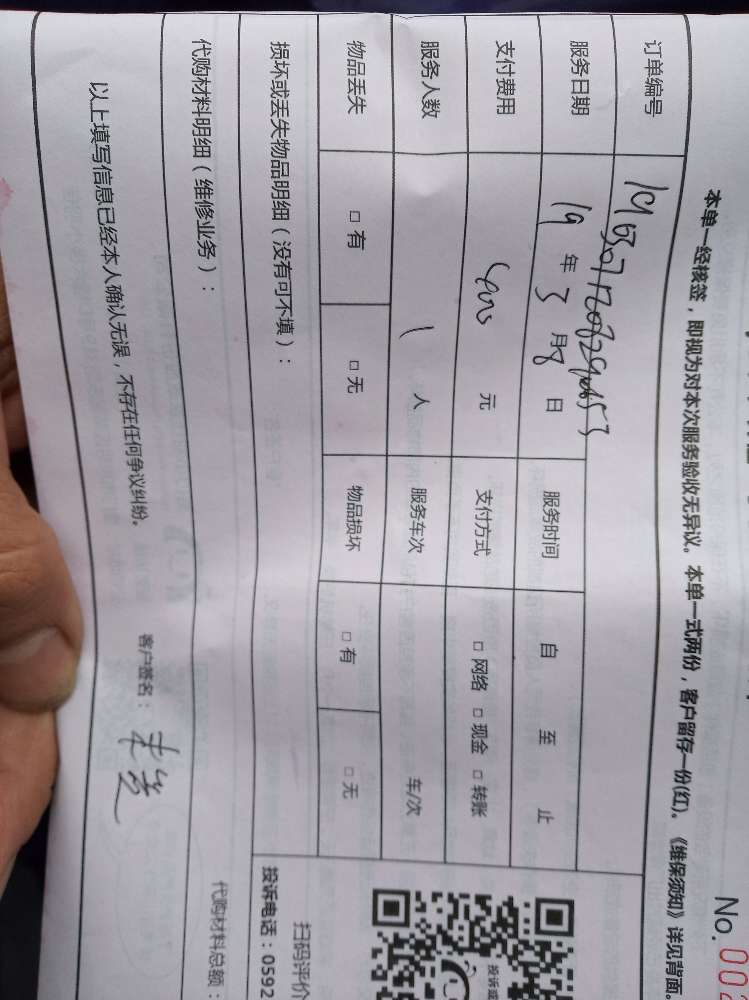 No. 00
本单一经核签，即视为对本次服务验收无异议。本单一式两份，客户留存一份(红)。《维保须知》详见背面。
订单编号
服务日期 19 年 3 月 8 日 服务时间 自 至 止
支付费用 元 支付方式 □ 网络 □ 现金 □ 转账
服务人数 1 人 服务车次 车/次
物品丢失 □ 有 □ 无 物品损坏 □ 有 □ 无
损坏或丢失物品明细（没有可不填）：
扫码评价
投诉电话：0592
代购材料明细（维修业务）：
代购材料总额：
以上填写信息已经本人确认无误，不存在任何争议纠纷。
客户签名：